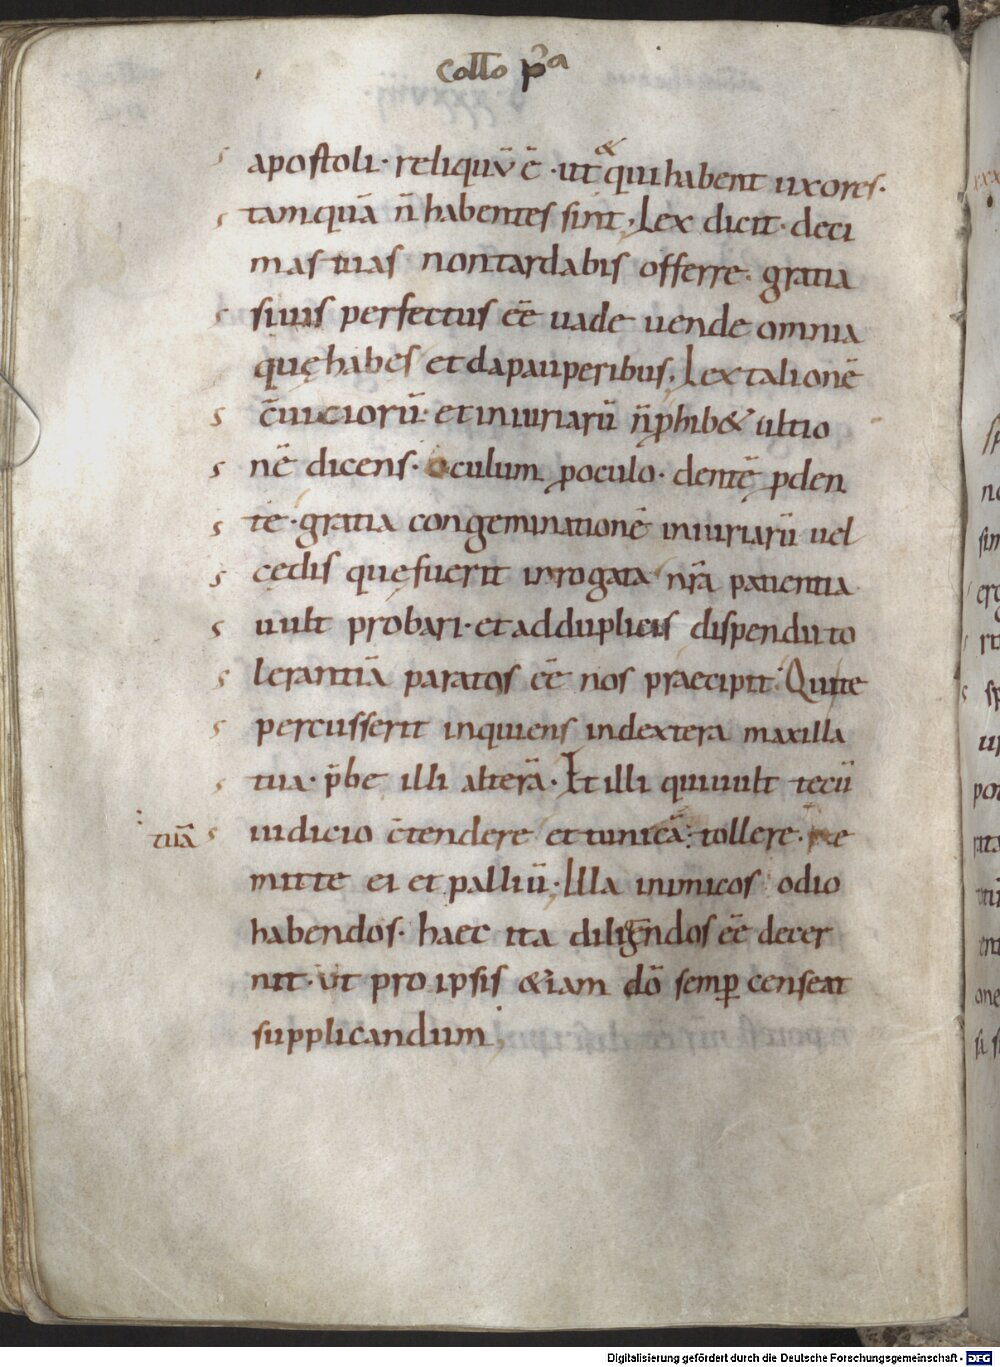 Collo pᵃ
apostoli· reliquū ē ·ut & qui habent uxores·
tamquā n̄ habentes sint· Lex dicit· deci
mas tuas non tardabis offerre· gratia
si uis perfectus eē uade uende omnia
quę habes et da pauperibus· Lex talionē
c̄uiciorū· et iniuriarū n̄ ꝓhib& ultio
nē dicens· oculum ꝓ oculo· dentē ꝓ den
te· gratia congeminationē iniuriarū uel
cędis quę fuerit inrogata nr̄a patientia
uult probari· et ad duplicis dispendii to
lerantiā paratos eē nos praecipit· Qui te
percusserit inquiens in dextera maxilla
tua· p̄be illi alterā· Et illi qui uult tecū
tuā iudicio c̄tendere et tunicā: tollere· re
mitte ei et palliū· Illa inimicos odio
habendos· haec ita diligendos eē decer
nit· ut pro ipsis &iam dō semꝑ censeat
supplicandum
Digitalisierung gefördert durch die Deutsche Forschungsgemeinschaft - DFG